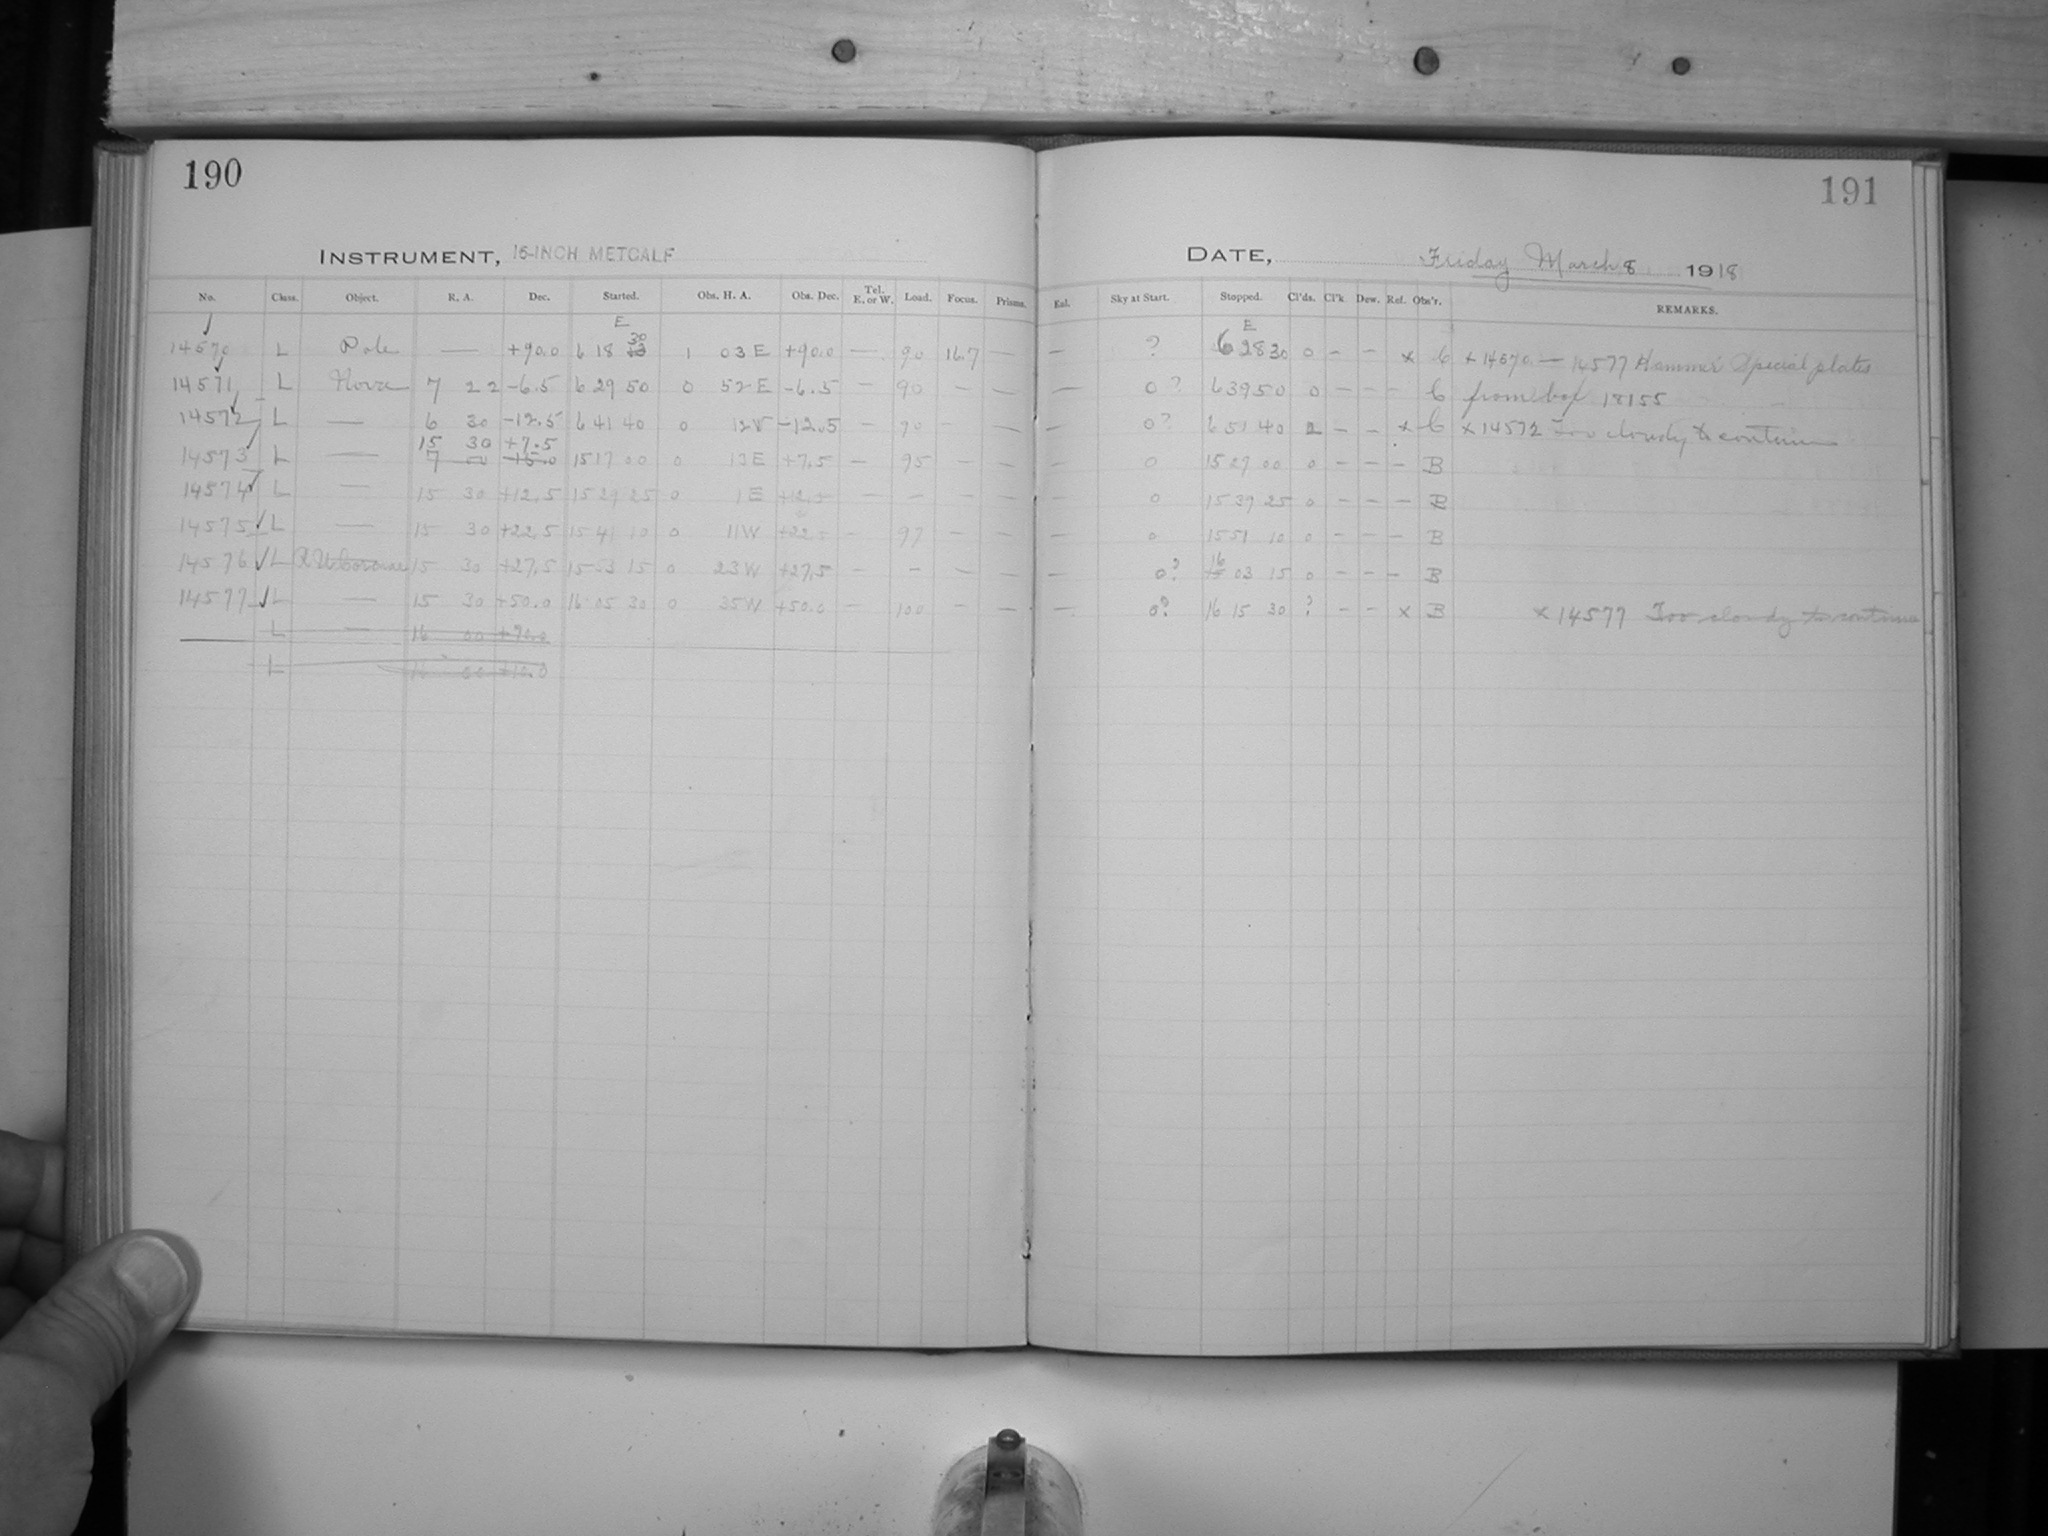 190
INSTRUMENT, 16-INCH METCALF
No. Class. Object. R. A. Dec. Started. Obs. H. A. Obs. Dec. Tel. E. or W. Load. Focus. Prisms.
E
14570 L Pole — +90.0 6 18 30 1 03 E +90.0 — 90 16.7 —
14571 L Nova 7 22 -6.5 6 29 50 0 52 E -6.5 — 90 — —
14572 L — 6 30 -12.5 6 41 40 0 -12.5 — 90 — —
15 30 +7.5
14573 L — 7 00 -15.0 15 17 00 0 13 E +7.5 — 95 — —
14574 L — 15 30 +12.5 15 29 25 0 1 E +12.5 — — — —
14575 L — 15 30 +22.5 15 41 10 0 11 W +22.5 — 97 — —
14576 L 15 30 +27.5 15 53 15 0 23 W +27.5 — — — —
14577 L — 15 30 +50.0 16 05 30 0 35 W +50.0 — 100 — —
L — 16 00
L 16 00 +10.0
191
DATE, Friday March 8 1918
Exl. Sky at Start. Stopped. Cl'ds. Cl'k. Dew. Ref. Obs'r. REMARKS.
E
— ? 6 28 30 0 — — x C x 14570 — 14577 Hammer Special plates
— 0? 6 39 50 0 — — — C from box 18155
— 0? 6 51 40 2 — — x C x 14572 Too cloudy to continue
— 0 15 27 00 0 — — — B
— 0 15 39 25 0 — — — B
— 0 15 51 10 0 — — — B
16
— 0? 15 03 15 0 — — — B
— 0? 16 15 30 ? — — x B x 14577 Too cloudy to continue